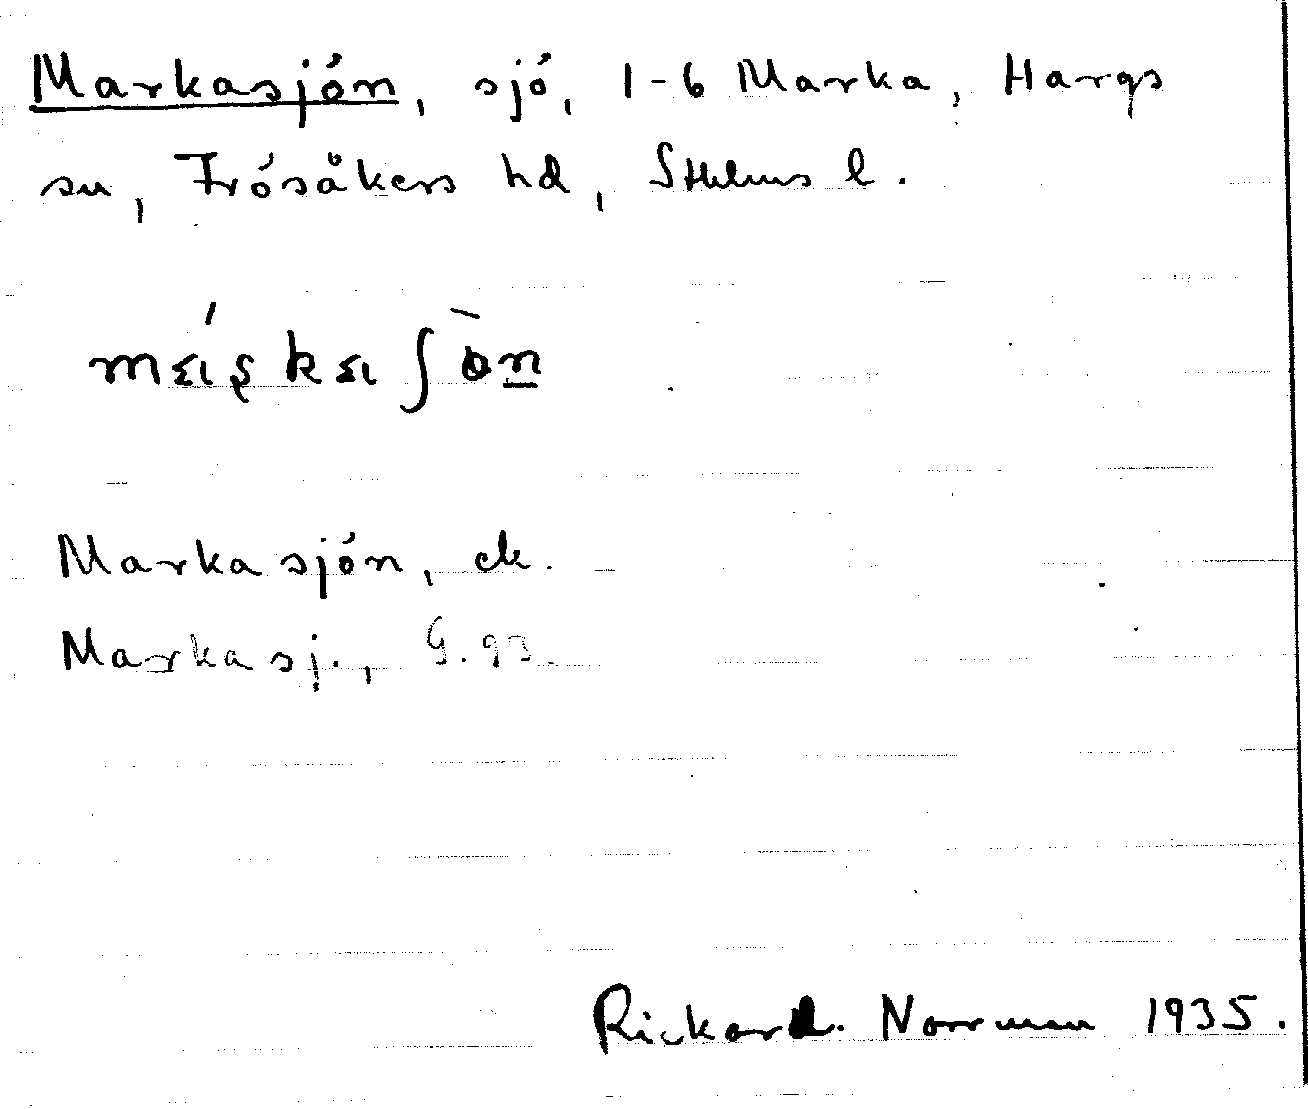 Markasjön, sjö, 1-6 Marka, Hargs
sn, Frösåkers hd, Sthlms l.
Markasjön, ek.
Markasj., G. 93.
Rickard Norrman 1935.